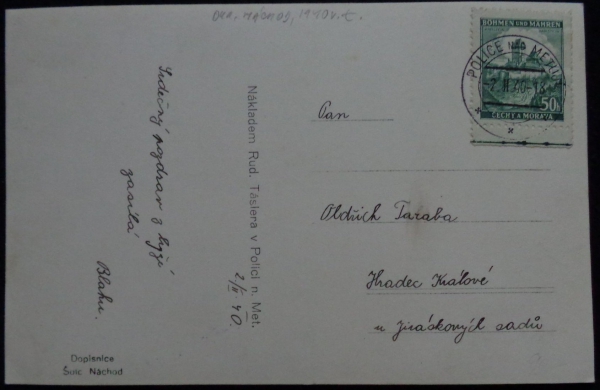 OKR. NÁCHOD, 1940
BÖHMEN UND MÄHREN
50h
ČECHY A MORAVA
POLICE NAD METUJÍ
Srdečný pozdrav z
zasílá
Blahu.
2/II 40.
Nákladem Rud. Táslera v Polici n. Met.
Pan
Oldřich Taraba
Hradec Králové
u Jiráskových sadů
Dopisnice
Šulc Náchod